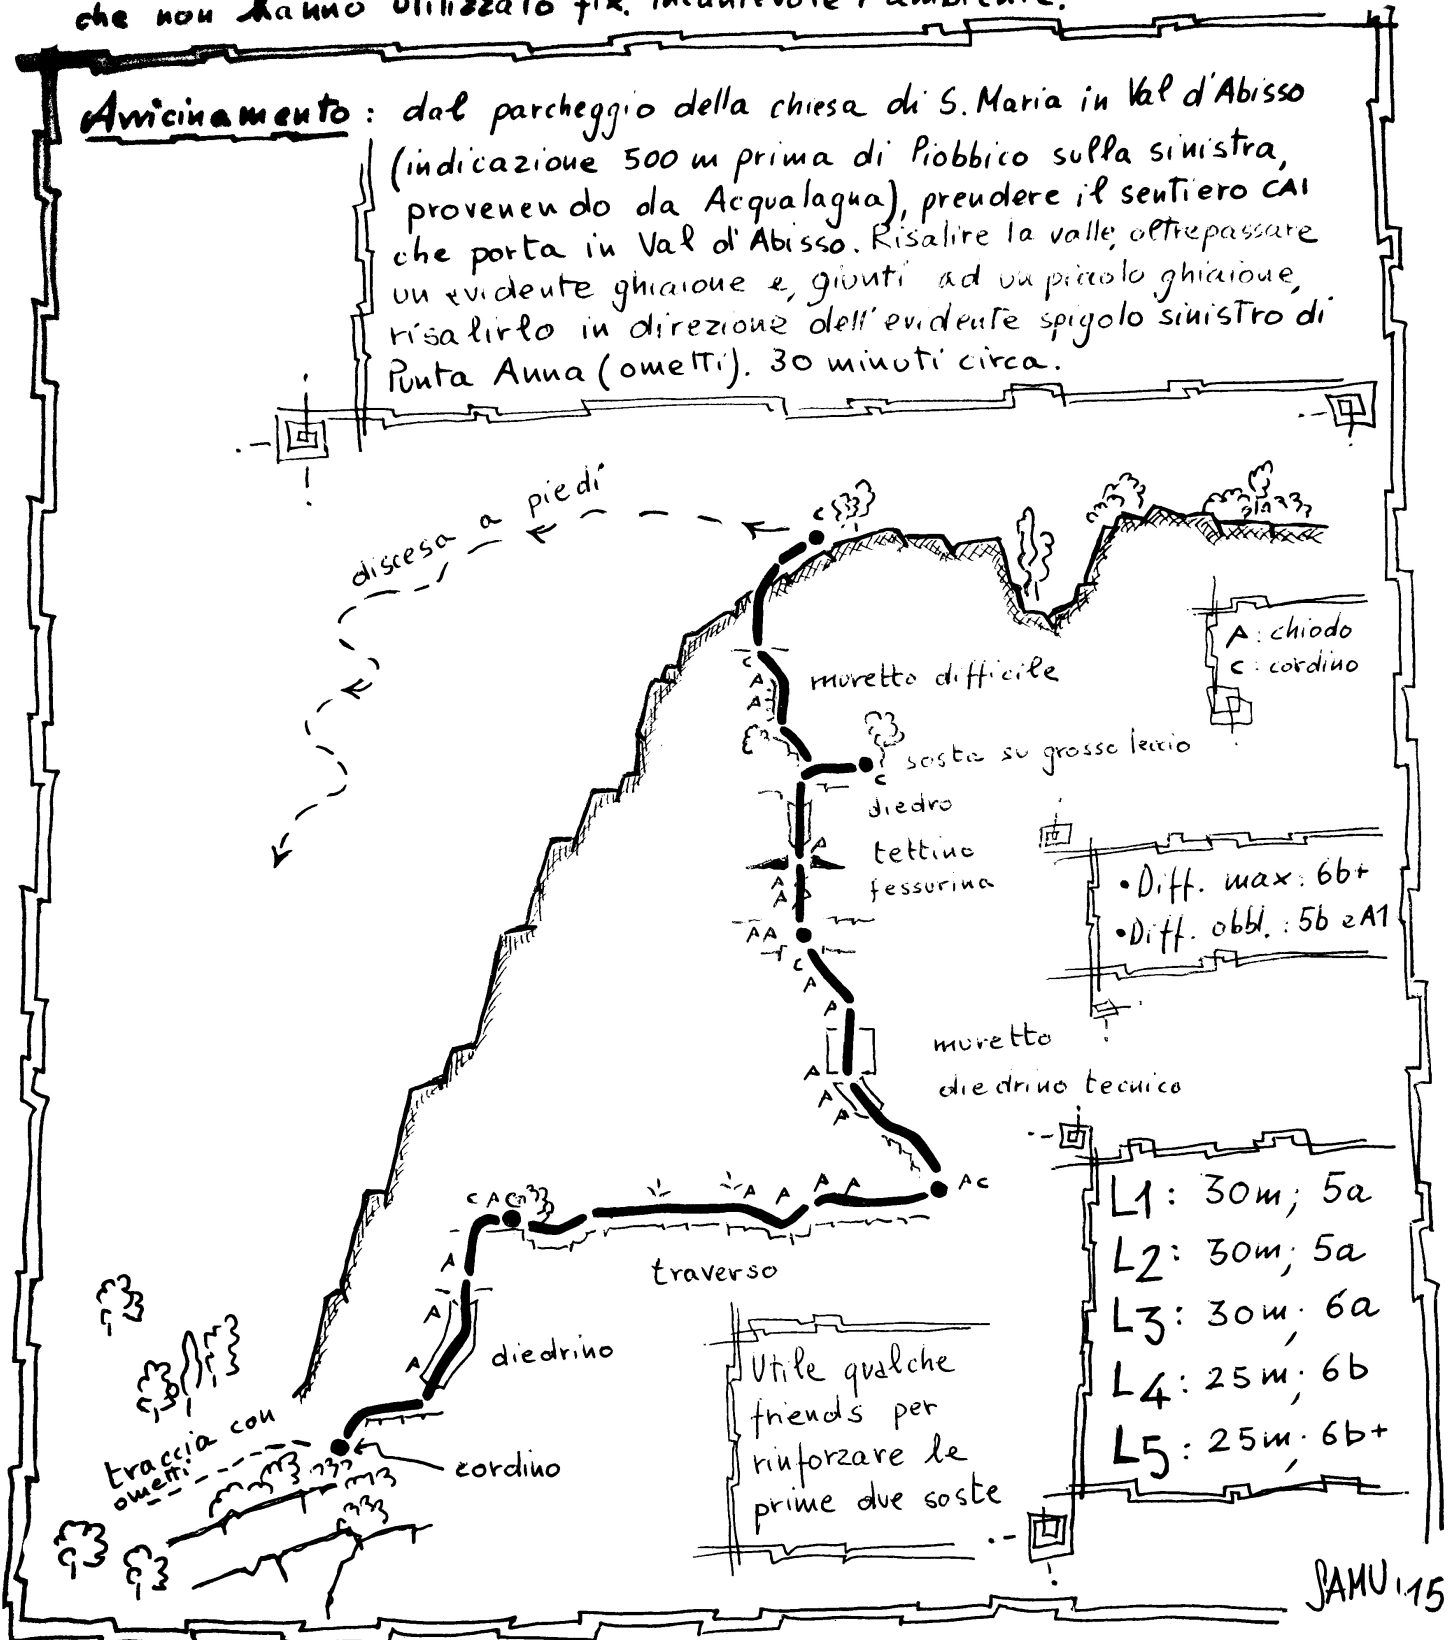 che non hanno utilizzato fix. incantevole l'ambiente.
Avvicinamento: dal parcheggio della chiesa di S. Maria in Val d'Abisso
(indicazione 500 m prima di Piobbico sulla sinistra,
provenendo da Acqualagna), prendere il sentiero CAI
che porta in Val d'Abisso. Risalire la valle, oltrepassare
un evidente ghiaione e, giunti ad un piccolo ghiaione,
risalirlo in direzione dell'evidente spigolo sinistro di
Punta Anna (ometti). 30 minuti circa.
discesa a piedi
C
A: chiodo
C: cordino
C
A
A
muretto difficile
sosta su grosso leccio
C
diedro
A
tettino
A
A A
fessurina
• Diff. max: 6b+
• Diff. obbl.: 5b e A1
AA
C
A
A
muretto
A
diedrino tecnico
A
A
A C
C A C
A A A A
A
traverso
A
A
diedrino
L1: 30m; 5a
L2: 30m; 5a
L3: 30m; 6a
L4: 25m; 6b
L5: 25m; 6b+
Utile qualche
friends per
rinforzare le
prime due soste
traccia con
ometti
cordino
SAMU '15